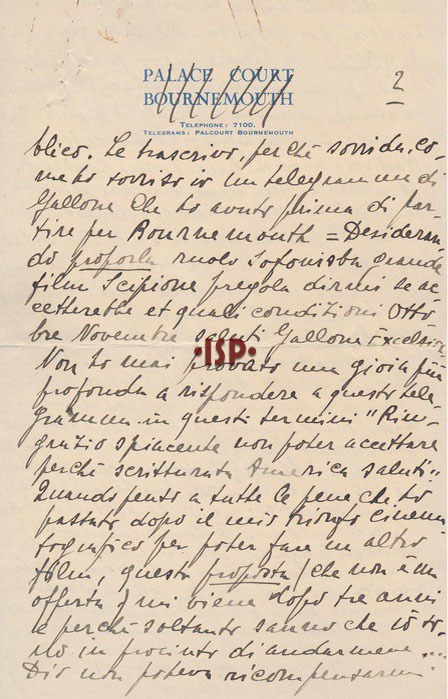 PALACE COURT
BOURNEMOUTH
TELEPHONE: 7100.
TELEGRAMS: PALCOURT BOURNEMOUTH
2
blico. Le trascrivo, perchè sorrida, co-
me ho sorriso io un telegramma di
Gallone che ho avuto prima di par-
tire per Bournemouth = Desideran
do proporla ruolo Sofonisba grande
film Scipione pregola dirmi se ac
cetterebbe et quali condizioni Otto
bre Novembre saluti Gallone Excelsior
Non ho mai provato una gioia più
profonda a rispondere a questo tele
gramma in questi termini "Rin-
grazio spiacente non poter accettare
perchè scritturata America saluti".
Quando penso a tutte le pene che ho
passato dopo il mio trionfo cinema
tografico per poter fare un altro
film, questa proposta (che non è un
offerta) mi viene dopo tre anni
e perchè soltanto sanno che io so-
no in procinto di andarmene ....
Dio non poteva ricompensarmi
ISP